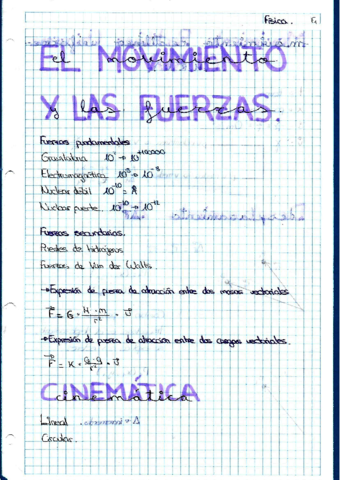 Física.
EL MOVIMIENTO
el movimiento
Y LAS FUERZAS.
y las fuerzas.
Fuerzas fundamentales:
Gravitatoria 10¹ → 10^+∞
Electromagnética 10⁰ → 10⁻⁸
Nuclear débil 10⁻¹⁰ = Å
Nuclear fuerte 10⁻¹⁰ → 10⁻¹²
Fuerzas secundarias.
Puentes de hidrógeno
Fuerzas de Van der Walls.
→ Expresión de fuerza de atracción entre dos masas vectoriales.
F = G · M · m / r² · U
→ Expresión de fuerza de atracción entre dos cargas vectoriales.
F = K · Q · q / r² · U
CINEMÁTICA
cinemática
Lineal.
Circular.